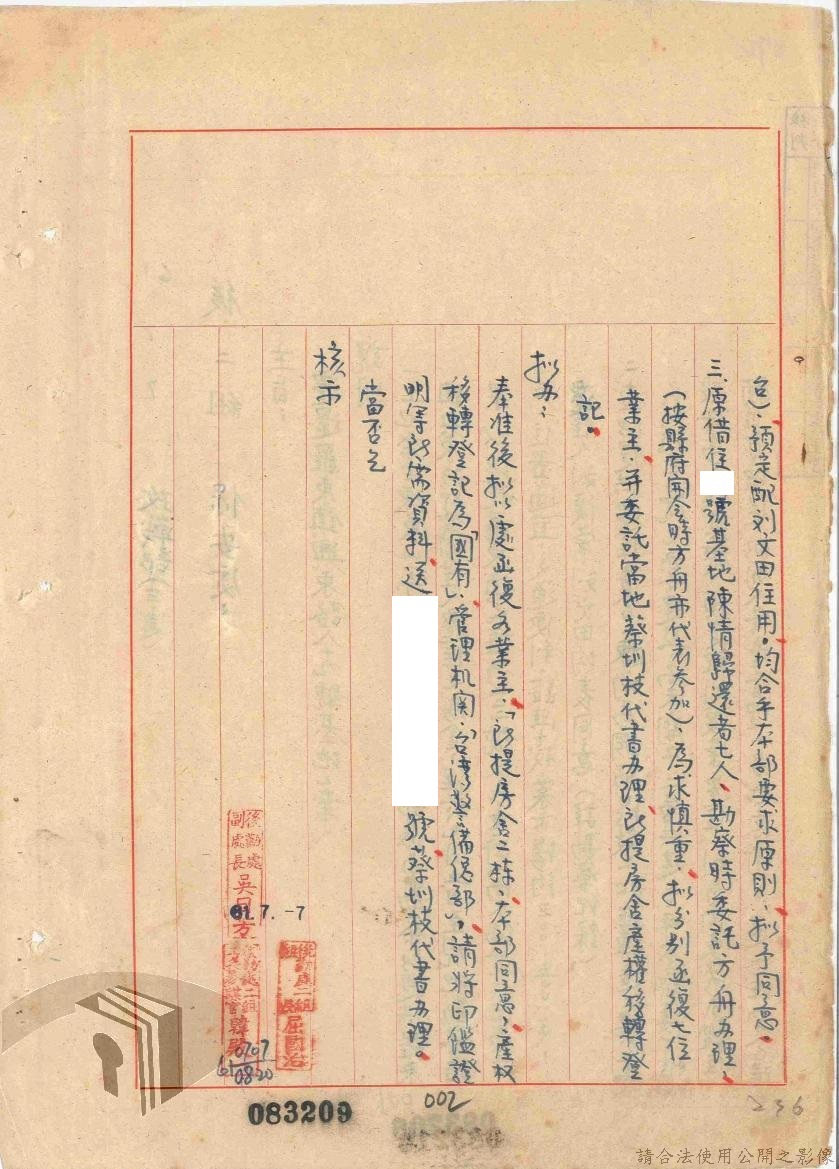 台)，預定配刘文田住用。均合乎本部要求原則，拟予同意。
三、原借住 號基地陳情歸還者七人、勘察時委託方舟办理，
(按縣府開会時方舟亦代表參加)，為求慎重，拟分别函復七位
業主，并委託當地蔡圳枝代書办理所提房舍產權移轉登
記。
拟办：
奉准後拟以處函復各業主：「所提房舍二栋，本部同意，產权
移轉登記為「國有」，管理机関「台湾警備總部」，請将印鑑證
明等所需資料送 號蔡圳枝代書办理。
當否乞
核示
後勤處
副處長吳
61.7.-7
後勤處二組
組長屈國治
後勤處二組
參謀官韓
0707
0820
083209
002
236
請合法使用公開之影像